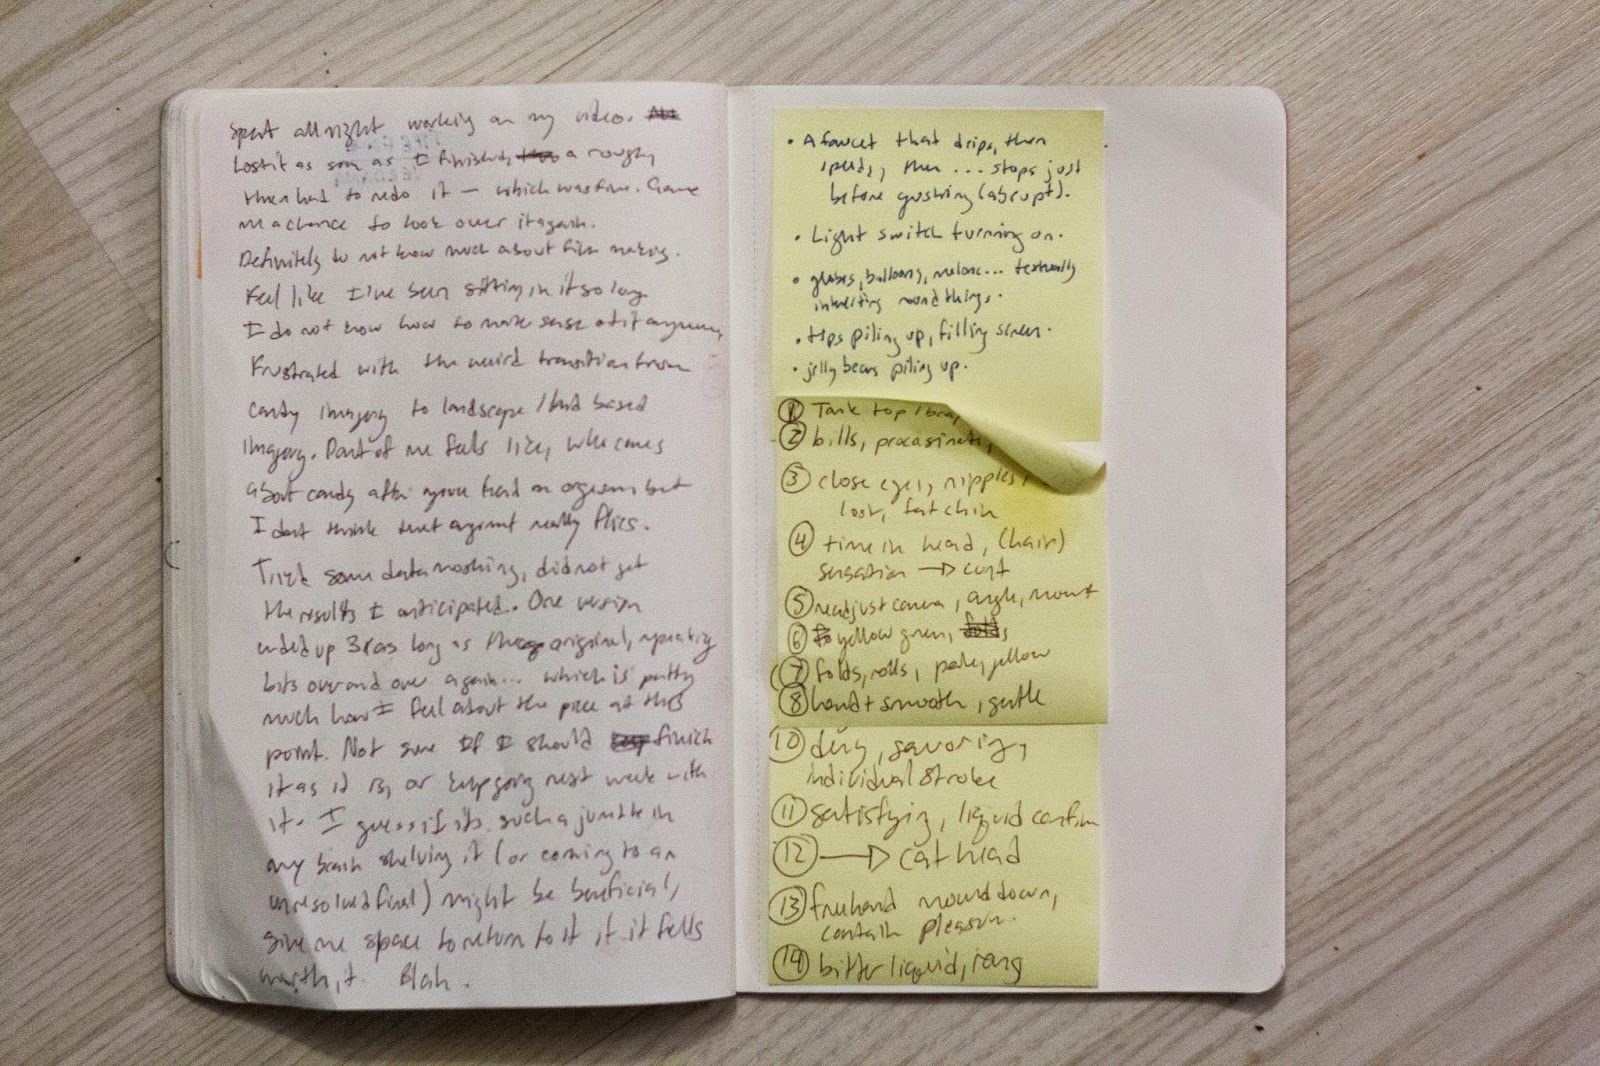 Spent all night working on my video.
Lost it as soon as I finished, a rough,
then had to redo it — which was fine. Gave
me a chance to look over it again.
Definitely do not know much about film making.
Feel like I've been sitting in it so long
I do not know how to make sense of it anymore,
Frustrated with the weird transition from
candy imagery to landscape / based
imagery. Part of me feels like, who cares
about candy after you've had an orgasm but
I dont think that argument really flies.
Tried some datamoshing, did not get
the results I anticipated. One version
ended up 3x as long as the original, repeating
bits over and over again... which is pretty
much how I feel about the piece at this
point. Not sure if I should finish
it as it is, or keep going next week with
it. I guess if its such a junk in
my brain shelving it (or coming to an
unresolved final) might be beneficial,
give me space to return to it if it feels
worth it. Blah.
• A faucet that drips, then
speeds, then ... stops just
before gushing (abrupt).
• Light switch turning on.
• globes, balloons, melons... texturally
interesting round things.
• tips piling up, filling screen.
• jelly beans piling up.
① Tank top / bra
② bills, procrasinate,
③ close eyes, nipples,
lost, fat chin
④ time in head, (hair)
sensation → cunt
⑤ readjust camera, angle, mount
⑥ yellow green,
⑦ folds, rolls, pale, yellow
⑧ hand + smooth, gentle
⑩ deny, savoring,
individual stroke
⑪ satisfying, liquid confirm
⑫ → cat head
⑬ freehand mound down,
contain pleasure.
⑭ bitter liquid,